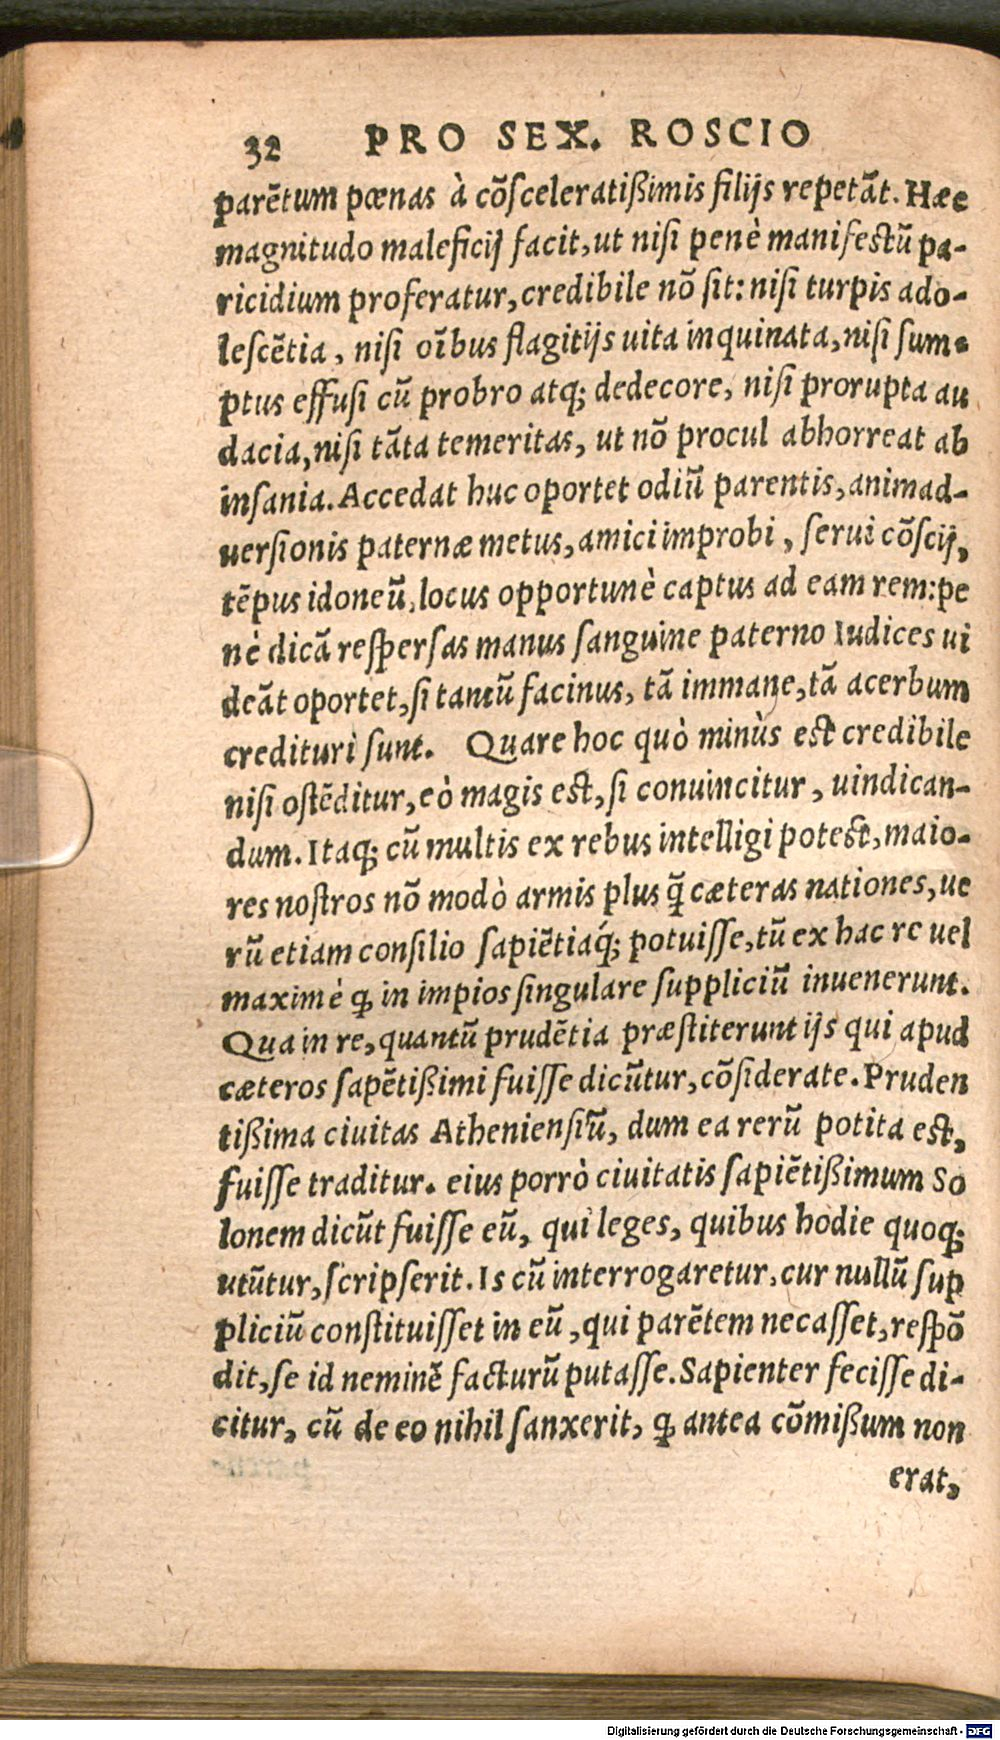 32 PRO SEX. ROSCIO
parẽtum pœnas à cõſceleratißimis filijs repetãt. Hæc
magnitudo maleficij facit, ut niſi penè manifeſtũ pa-
ricidium proferatur, credibile nõ ſit: niſi turpis ado-
leſcẽtia, niſi oĩbus flagitijs uita inquinata, niſi ſum-
ptus effuſi cũ probro atq; dedecore, niſi prorupta au
dacia, niſi tãta temeritas, ut nõ procul abhorreat ab
inſania. Accedat huc oportet odiũ parentis, animad-
uerſionis paternæ metus, amici improbi, ſerui cõſcij,
tẽpus idoneũ, locus opportunè captus ad eam rem: pe
nè dicã reſperſas manus ſanguine paterno Iudices ui
deãt oportet, ſi tantũ facinus, tã immane, tã acerbum
credituri ſunt. Quare hoc quò minùs eſt credibile
niſi oſtẽditur, eò magis eſt, ſi conuincitur, uindican-
dum. Itaq; cũ multis ex rebus intelligi poteſt, maio-
res noſtros nõ modò armis plus q̃ cæteras nationes, ue
rũ etiam conſilio ſapiẽtiaq́; potuiſſe, tũ ex hac re uel
maximè ꝙ in impios ſingulare ſuppliciũ inuenerunt.
Qua in re, quantũ prudẽtia præſtiterunt ijs qui apud
cæteros ſapẽtißimi fuiſſe dicũtur, cõſiderate. Pruden
tißima ciuitas Athenienſiũ, dum ea rerũ potita eſt,
fuiſſe traditur. eius porrò ciuitatis ſapiẽtißimum So
lonem dicũt fuiſſe eũ, qui leges, quibus hodie quoq;
utũtur, ſcripſerit. Is cũ interrogaretur, cur nullũ ſup
pliciũ conſtituiſſet in eũ, qui parẽtem necaſſet, reſpõ
dit, ſe id neminẽ facturũ putaſſe. Sapienter feciſſe di-
citur, cũ de eo nihil ſanxerit, ꝙ antea cõmißum non
erat,
Digitalisierung gefördert durch die Deutsche Forschungsgemeinschaft - DFG